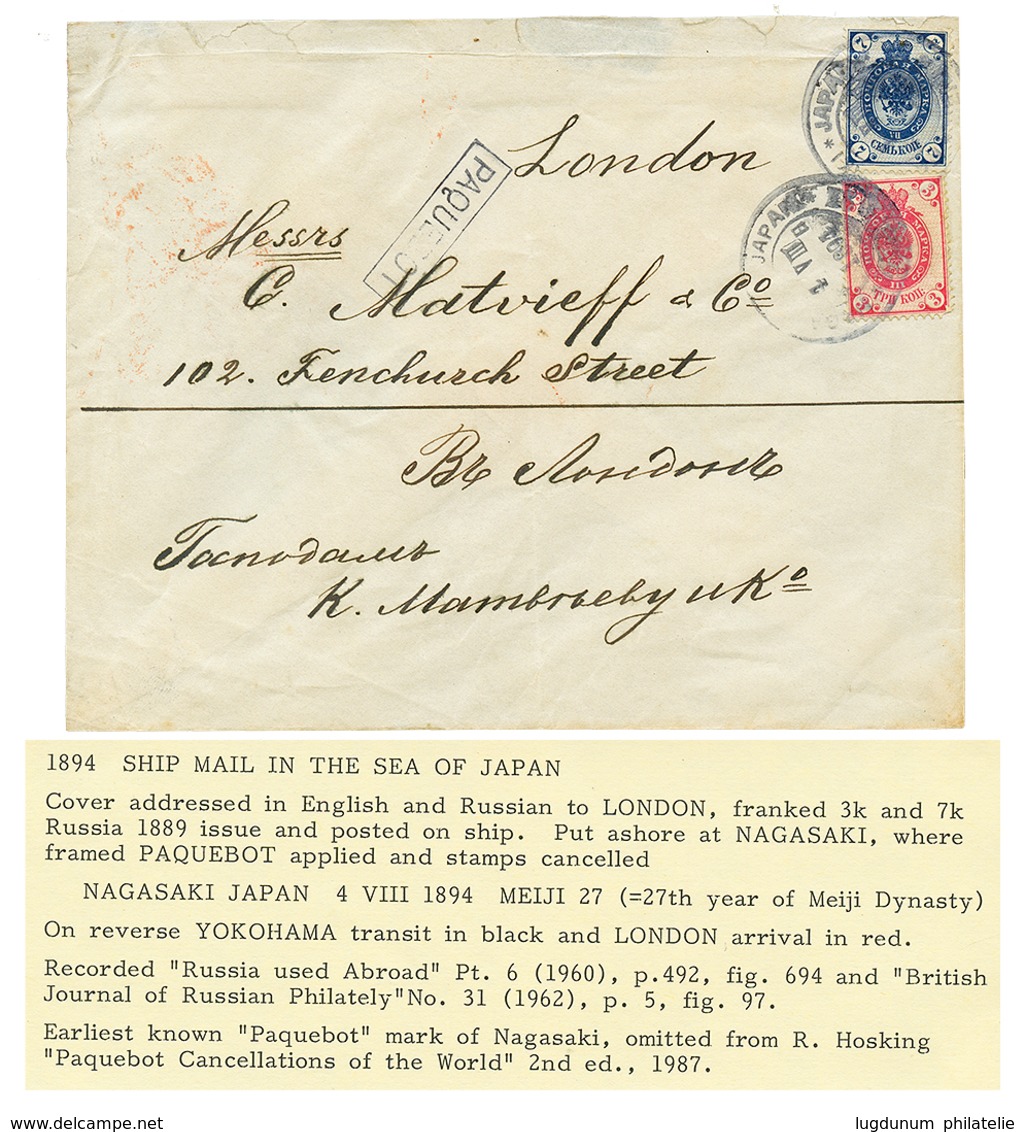 London
PAQUEBOT
Messrs
C. Matvieff & Co
102. Fenchurch Street
Въ Лондонъ
Господамъ
К. Матвѣеву и Ко
7 7
ПОЧТОВАЯ МАРКА
VII
СЕМЬ КОП.
7 7
3
ПОЧТОВАЯ МАРКА
III
ТРИ КОП.
3 3
* JAPAN
JAPAN
VIII
1894 SHIP MAIL IN THE SEA OF JAPAN
Cover addressed in English and Russian to LONDON, franked 3k and 7k
Russia 1889 issue and posted on ship. Put ashore at NAGASAKI, where
framed PAQUEBOT applied and stamps cancelled
NAGASAKI JAPAN 4 VIII 1894 MEIJI 27 (=27th year of Meiji Dynasty)
On reverse YOKOHAMA transit in black and LONDON arrival in red.
Recorded "Russia used Abroad" Pt. 6 (1960), p.492, fig. 694 and "British
Journal of Russian Philately"No. 31 (1962), p. 5, fig. 97.
Earliest known "Paquebot" mark of Nagasaki, omitted from R. Hosking
"Paquebot Cancellations of the World" 2nd ed., 1987.
www.delcampe.net
lugdunum philatelie